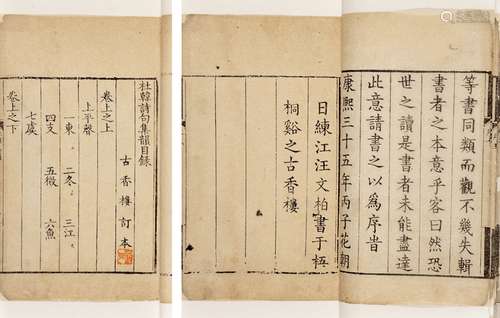 等書同類而觀不幾失輯
書者之本意乎客曰然恐
世之讀是書者未能盡達
此意請書之以爲序旹
康熙三十五年丙子花朝
日練江汪文柏書于梧
桐谿之古香樓
杜韓詩句集韻目錄
古香樓訂本
卷上之上
上平聲
一東 二冬 三江
四支 五微 六魚
七虞
卷上之下